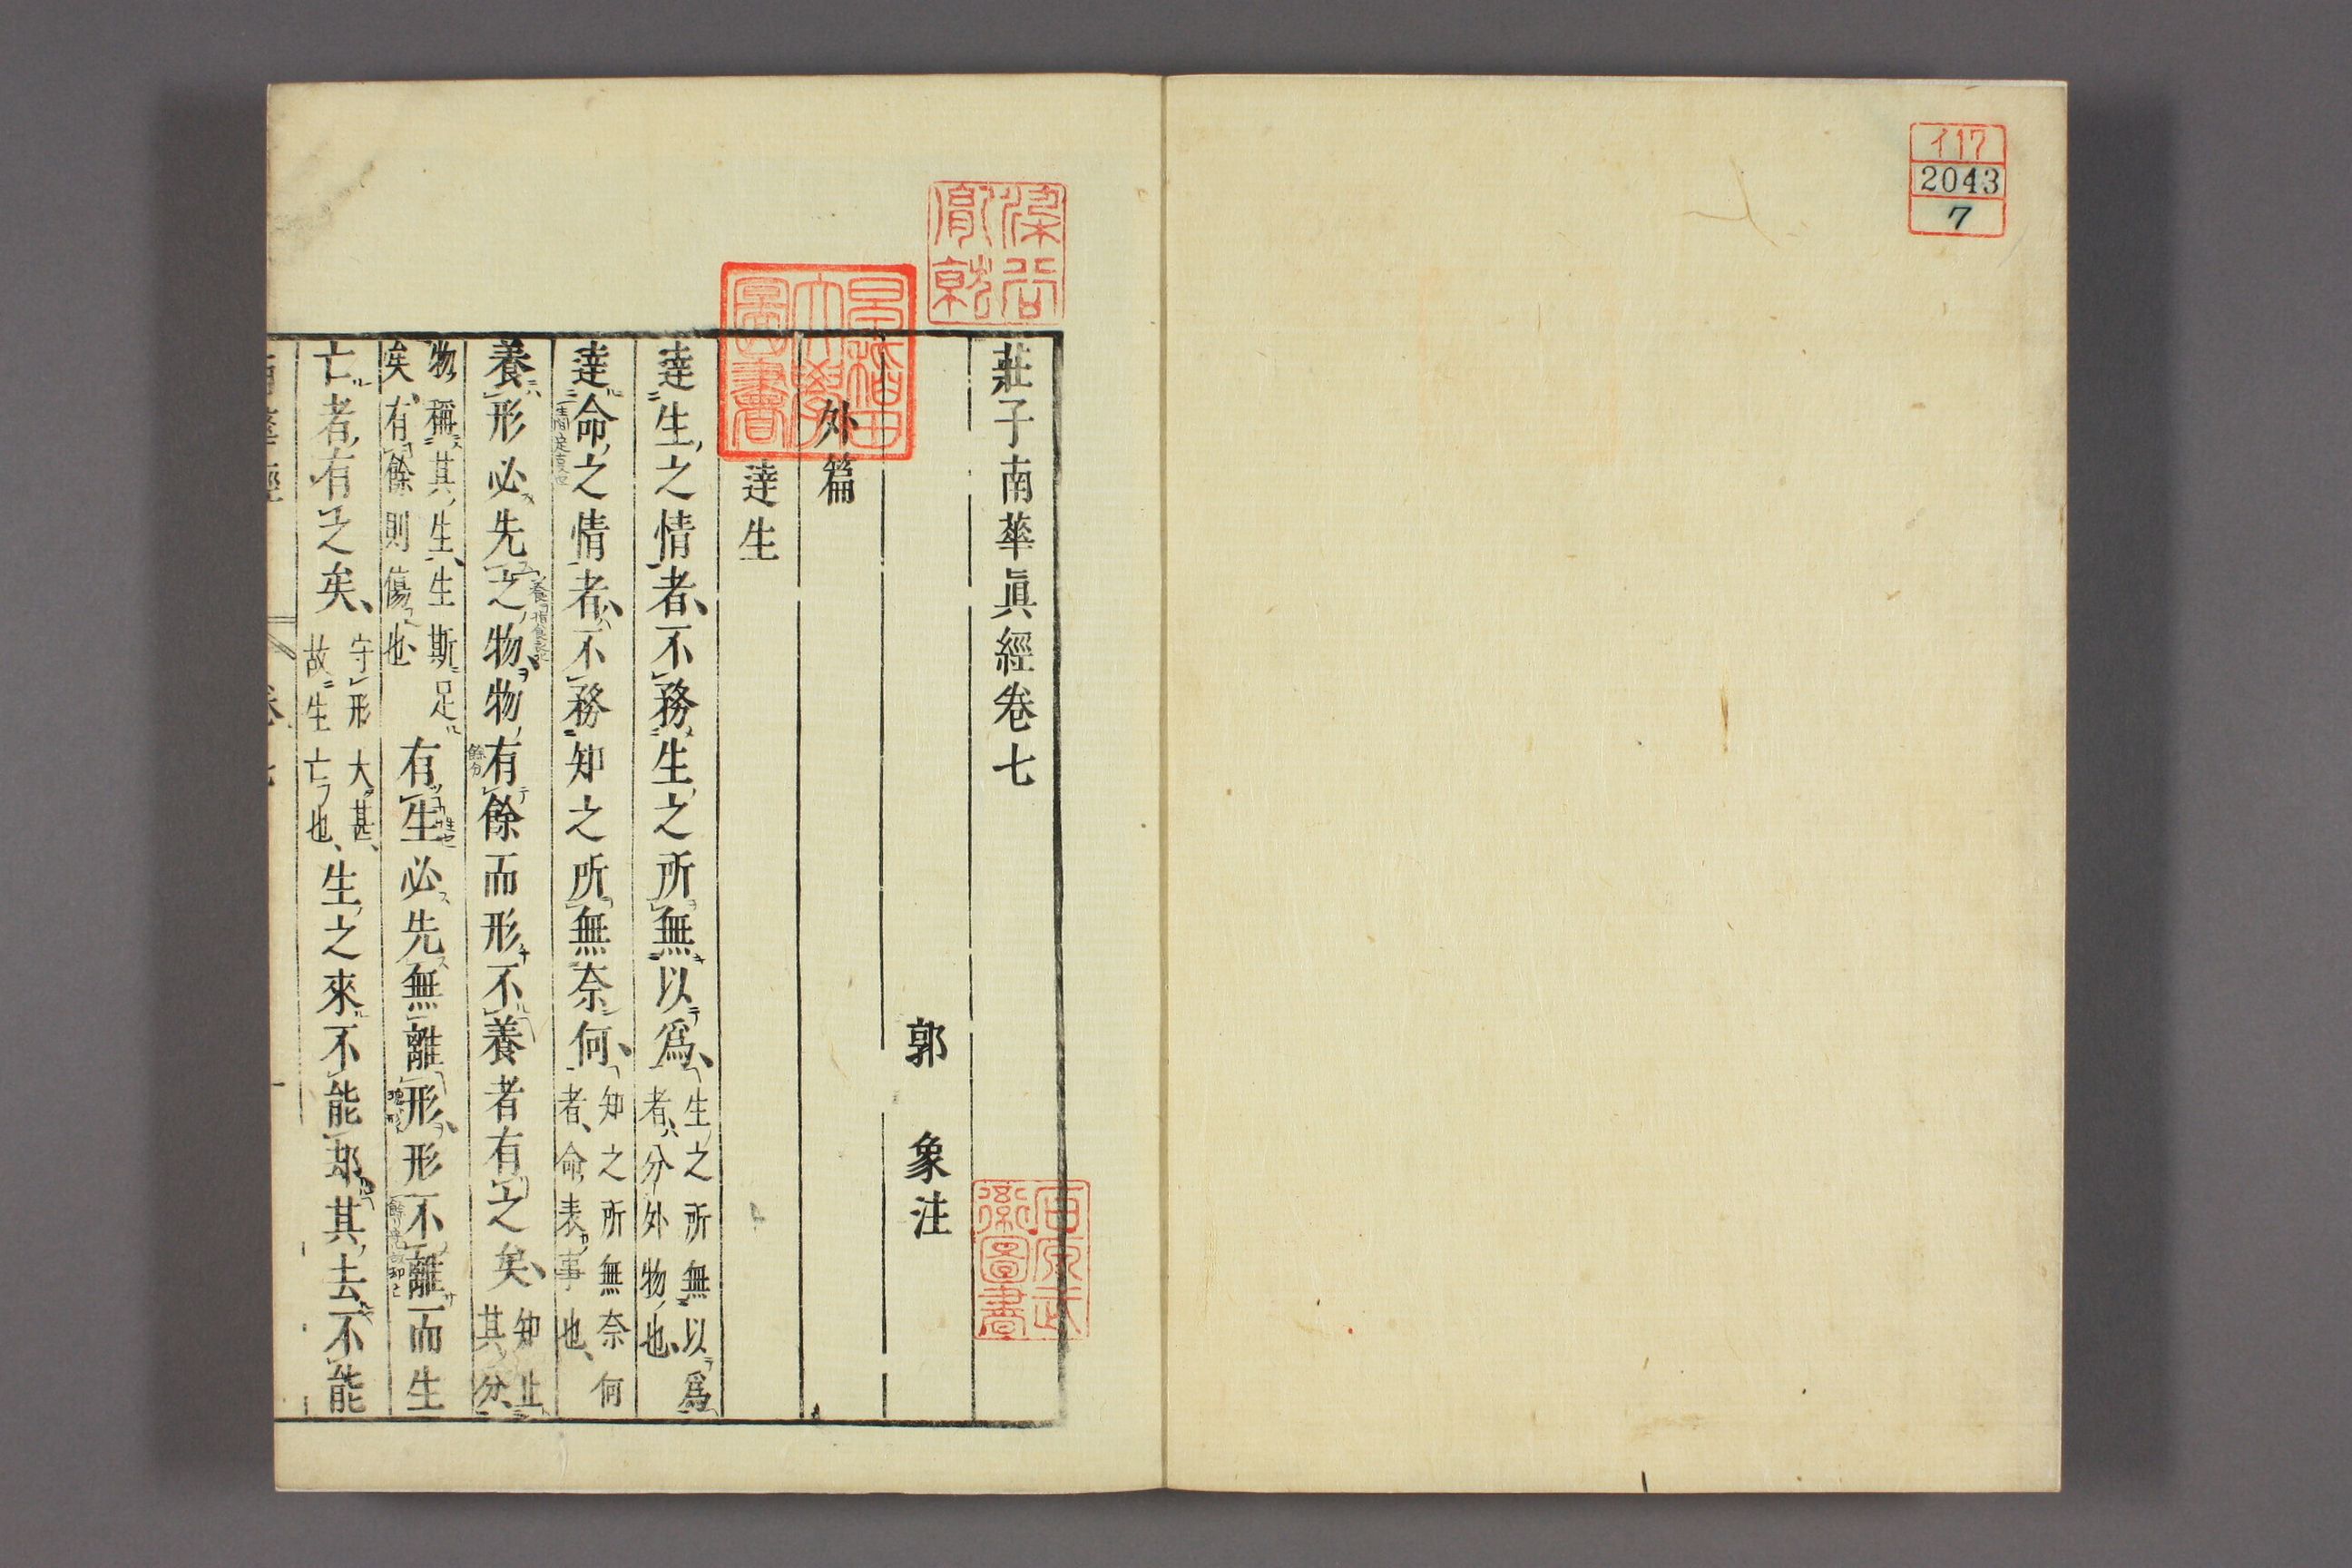 イ17
2043
7
莊子南華眞經卷七
郭 象注
外篇
達生
達生之情者、不務生之所無以爲、生之所無以爲者、分外物也、
達命之情者、不務知之所無奈何、知之所無奈何者、命表事也、
養形必先之物、物有餘而形不養者有之矣、知止其分、
物稱其生、生斯足矣、有餘則傷也 有生必先無離形、形不離而生
亡者有之矣、守形大甚、故生亡也、生之來不能郤其去不能
早稲田大學圖書